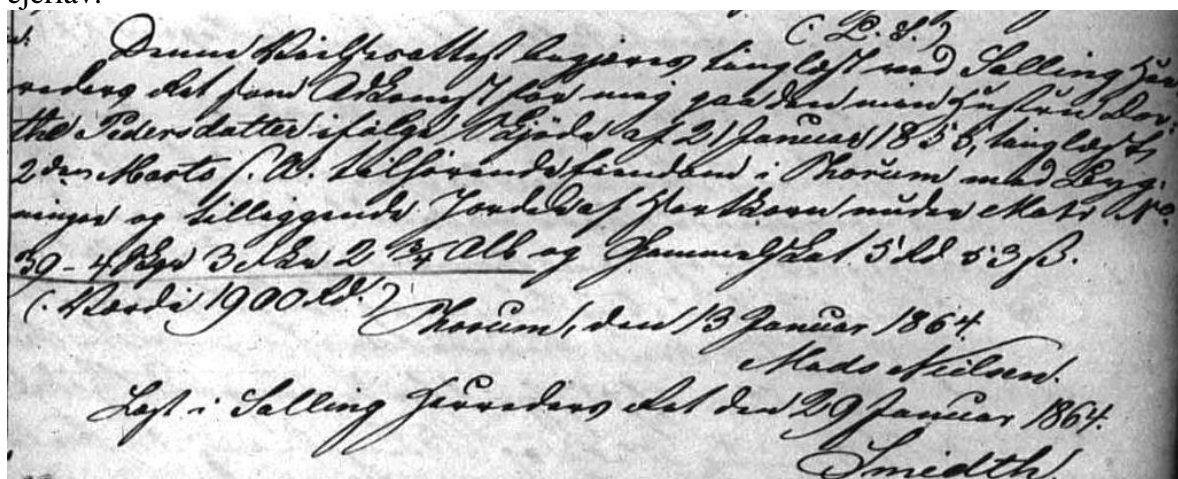 ejerlav.
(L. S.)
Denne Vielsesattest begjæres tinglæst ved Salling Her-
reders Ret som Adkomst for mig paa den min Hustru Dor-
the Pedersdatter ifølge Skjøde af 21 Januar 1855, tinglæst
2den Marts s. A. tilhørende Eiendom i Thorum med Byg-
ninger og tilliggende Jorder af Hartkorn under Matr No
39 - 4 Skp 3 Fkr 2 3/4 Alb og Gammelskat 5 Rd 53 ß.
(Værdi 1900 Rd.)
Thorum, den 13 Januar 1864
Mads Nielsen.
Læst i Salling Herreders Ret den 29 Januar 1864.
Smidth